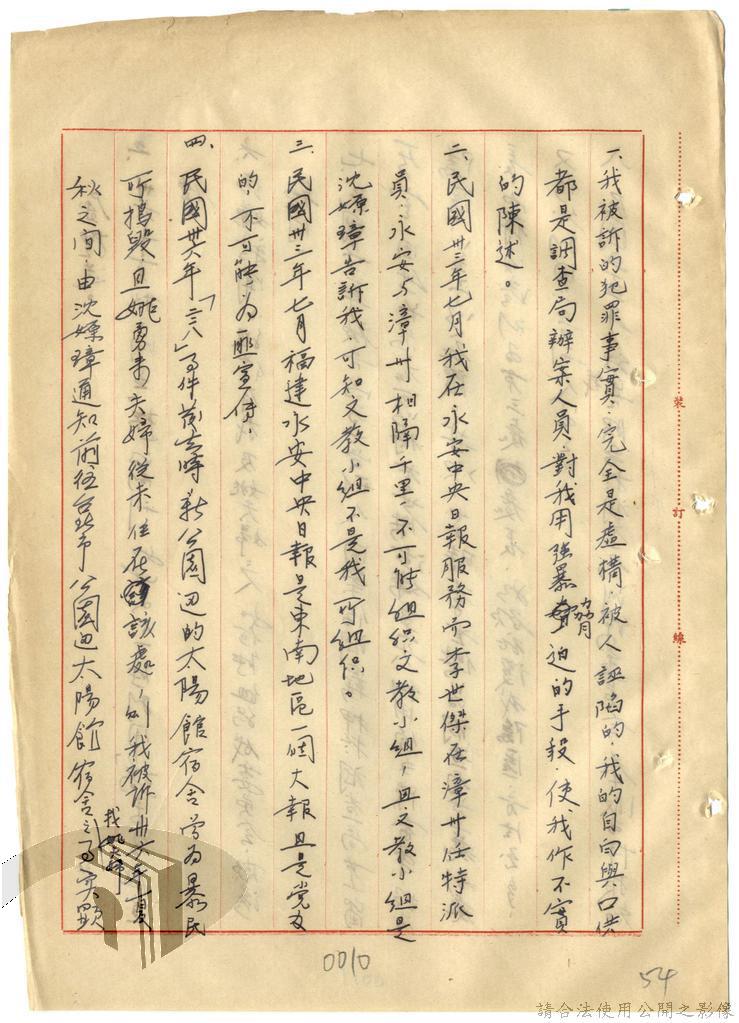 一、我被訴的犯罪事實,完全是虛構,被人誣陷的,我的自白與口供
都是調查局辦案人員,對我用強暴脅迫的手段,使我作不實
的陳述。
二、民國卅三年七月我在永安中央日報服務而李世傑在漳州任特派
員,永安与漳州相隔千里,不可能組织文教小組,且文教小組是
沈嫄璋告訴我,可知文教小組不是我所組织。
三、民國卅三年七月福建永安中央日報是東南地區一個大報且是党办
的,不可能為匪宣传,
四、民國卅六年「二二八」事件發生時新公園边的太陽館宿舍曾為暴民
所搗毀,且姚勇来夫婦從未住在該處,則我被訴卅六年夏
秋之間,由沈嫄璋通知前往台北市公園边太陽館宿舍之事实顯
我 姚夫婦
裝
訂
線
0010
54
請合法使用公開之影像